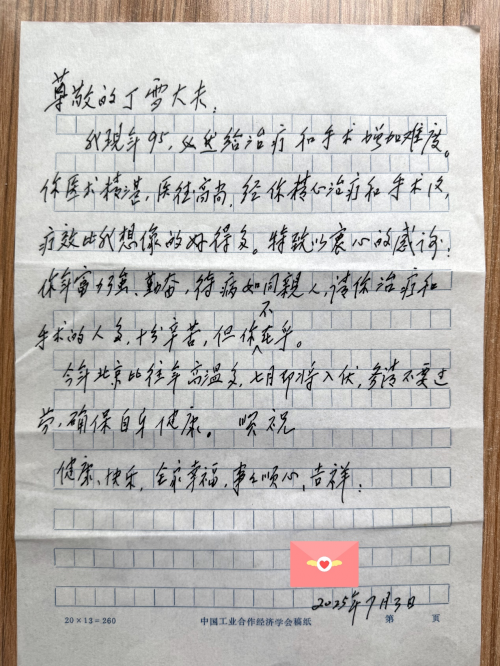 尊敬的丁雪大夫：
我现年95，必然给治疗和手术增加难度。
你医术精湛，医德高尚，经你精心治疗和手术后，
疗效比我想像的好得多。特致以衷心的感谢！
你年富力强、勤奋，待病如同親人，请你治疗和
手术的人多，十分辛苦，但你不在乎。
今年北京比往年高温多，七月即将入伏，多请不要过
劳，确保自身健康。顺祝
健康、快乐，全家幸福，事之顺心，吉祥！
2025年7月3日
20×13=260 中国工业合作经济学会稿纸 第 页